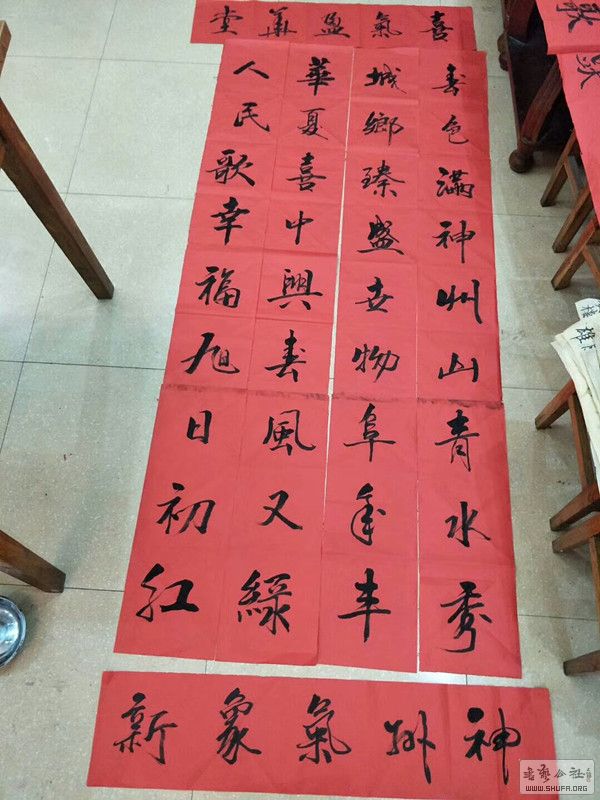 喜氣盈華堂
春色滿神州山青水秀
城鄉臻盛世物阜年丰
華夏喜中興春風又綠
人民歌幸福旭日初紅
神州氣象新
書藝公社
WWW.SHUFA.ORG